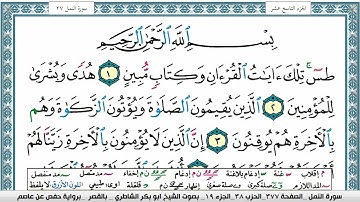 الجزء التاسع عشر
سورة النمل ٢٧
بِسْمِ اللَّهِ الرَّحْمَٰنِ الرَّحِيمِ
طسٓ ۚ تِلْكَ ءَايَٰتُ الْقُرْءَانِ وَكِتَابٍ مُّبِينٍ ١ هُدًى وَبُشْرَىٰ
لِلْمُؤْمِنِينَ ٢ الَّذِينَ يُقِيمُونَ الصَّلَوٰةَ وَيُؤْتُونَ الزَّكَوٰةَ وَهُم
بِالْءَاخِرَةِ هُمْ يُوقِنُونَ ٣ إِنَّ الَّذِينَ لَا يُؤْمِنُونَ بِالْءَاخِرَةِ زَيَّنَّا لَهُمْ
سورة النمل، الصفحة ٣٧٧، الحزب ٣٨، الجزء ١٩ بصوت الشيخ أبو بكر الشاطري بالقصر رواية حفص عن عاصم